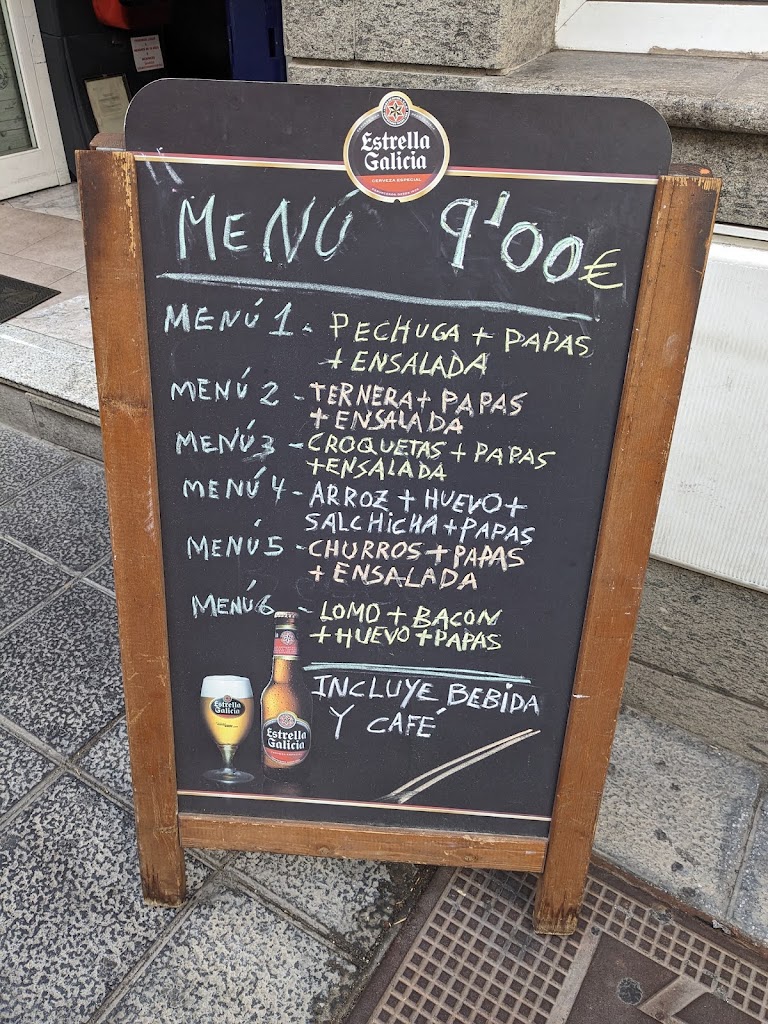 Estrella
Galicia
CERVEZA ESPECIAL
MENÚ 9'00€
MENÚ 1 - PECHUGA + PAPAS
+ ENSALADA
MENÚ 2 - TERNERA + PAPAS
+ ENSALADA
MENÚ 3 - CROQUETAS + PAPAS
+ ENSALADA
MENÚ 4 - ARROZ + HUEVO +
SALCHICHA + PAPAS
MENÚ 5 - CHURROS + PAPAS
+ ENSALADA
MENÚ 6 - LOMO + BACON
+ HUEVO + PAPAS
INCLUYE BEBIDA
Y CAFÉ
Estrella
Galicia
Estrella
Galicia